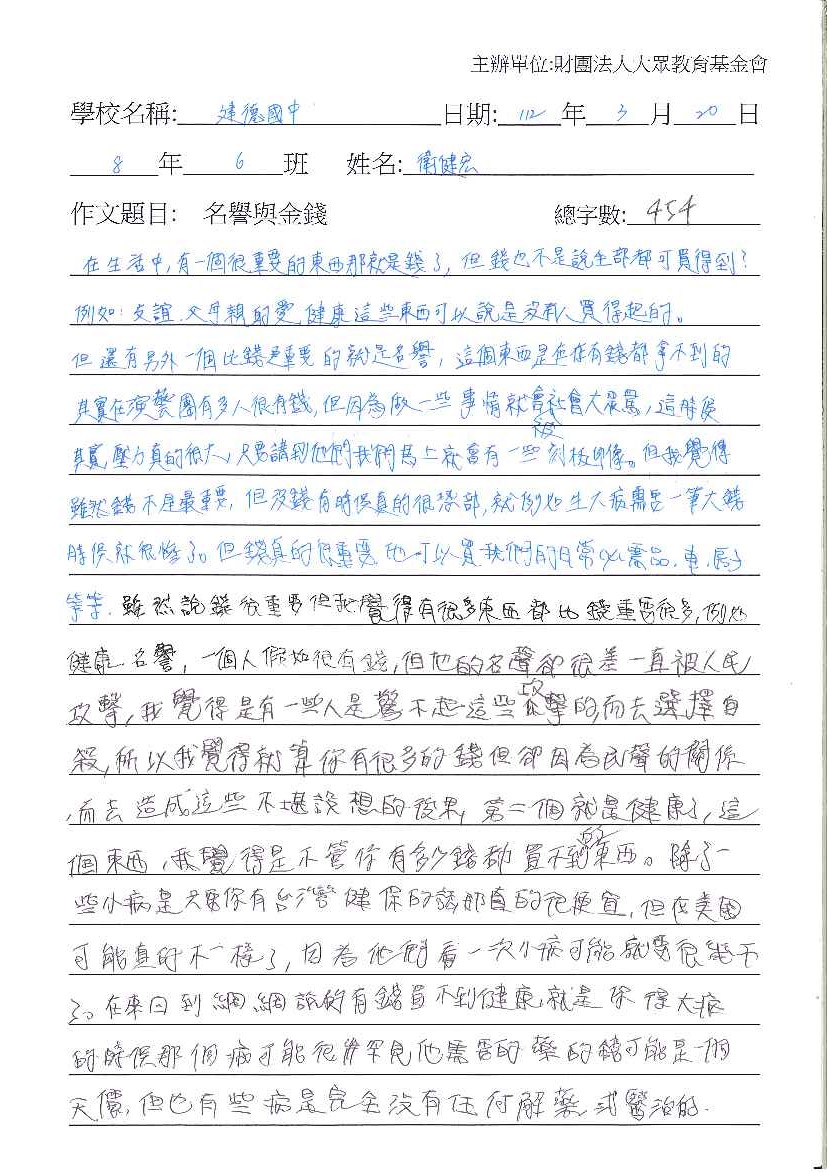 主辦單位:財團法人大眾教育基金會
學校名稱: 建德國中 日期: 112 年 3 月 20 日
8 年 6 班 姓名: 衛健宏
作文題目: 名譽與金錢 總字數: 454
在生活中,有一個很重要的東西那就是錢了,但錢也不是說全部都可買得到?
例如:友誼.父母親的愛.健康這些東西可以說是沒有人買得起的。
但還有另外一個比錢更重要的就是名譽,這個東西是在在有錢都拿不到的
其實在演藝圈有多人很有錢,但因為做一些事情就會被社會大眾罵,這時候
其實壓力真的很大,只要講到他們我們馬上就會有一些刻板印像。但我覺得
雖然錢不是最重要,但沒錢有時候真的很恐部,就例如生大病需要一筆大錢
時候就很慘了。但錢真的很重要他可以買我們的日常必需品.車.房子
等等.雖然說錢很重要但我覺得有很多東西都比錢重要很多,例如
健康.名譽,一個人假如很有錢,但他的名聲卻很差一直被人民
攻擊,我覺得是有一些人是驚不起這些攻擊的,而去選擇自
殺,所以我覺得就算你有很多的錢但卻因為民聲的關係
,而去造成這些不堪設想的後果,第二個就是健康了,這
個東西,我覺得是不管你有多少錢都買不到的東西。除了一
些小病是只要你有台灣健保的話那真的很便宜,但在美國
可能真的不一樣了,因為他們看一次小病可能就要很幾千
了。在來回到剛剛說的有錢買不到健康,就是你得大病
的時候那個病可能很罕見他需要的藥的錢可能是一個
天價,但也有些病是完全沒有任何解藥或醫治的.